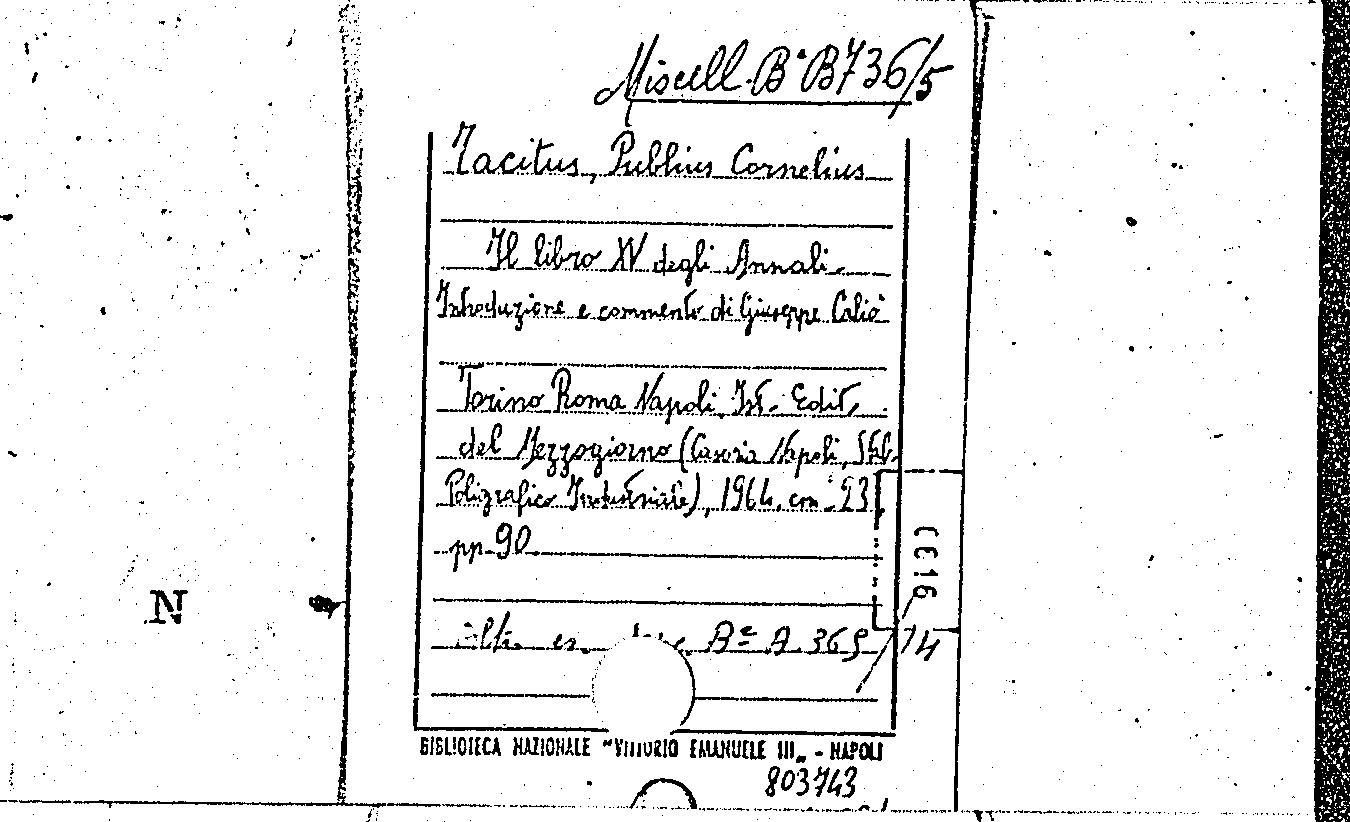 Miscell. Bª B736/5
Tacitus, Publius Cornelius
Il libro XV degli Annali.
Introduzione e commento di Giuseppe Caliò
Torino Roma Napoli, Ist. Edit.
del Mezzogiorno (Casoria Napoli, Stab.
Poligrafico Industriale), 1964, cm. 23
pp. 90
Bª A. 369/14
BIBLIOTECA NAZIONALE "VITTORIO EMANUELE III„ - NAPOLI
803743
N